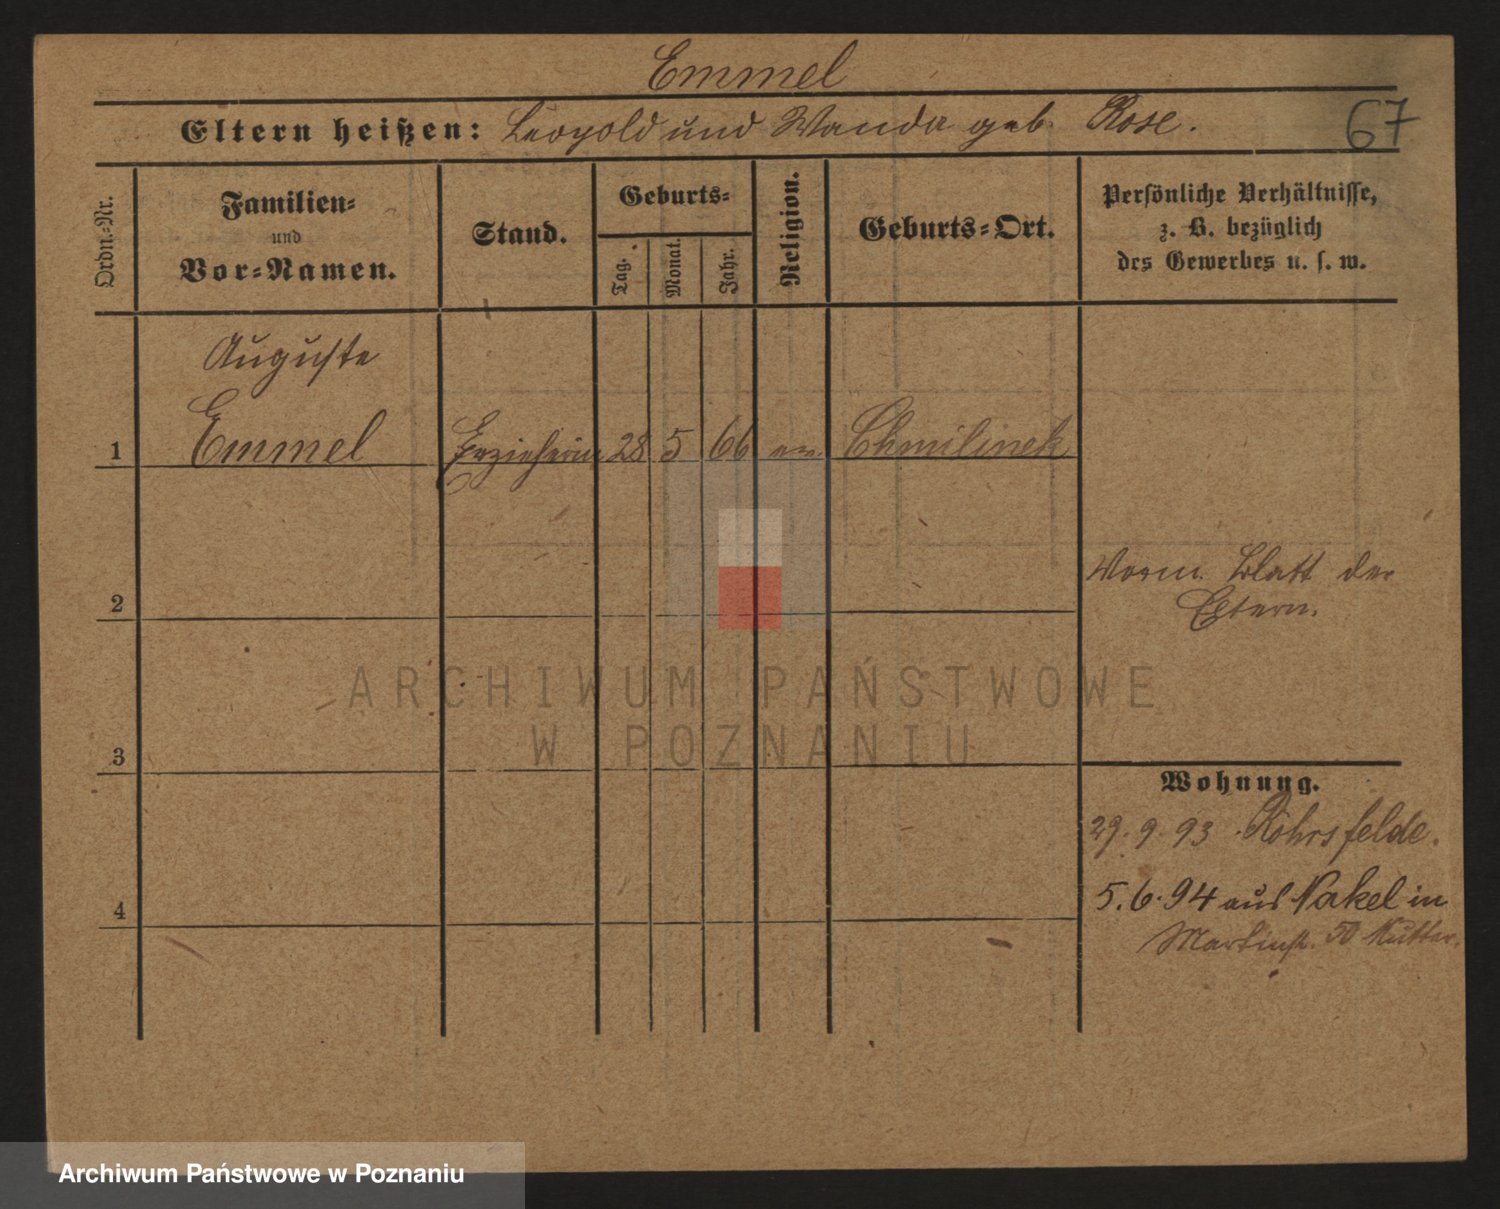 Emmel
Eltern heißen: Leopold und Wanda geb. Rose.
67
Ordn.-Nr.
Familien-
und
Vor-Namen.
Stand.
Geburts-
Tag.
Monat.
Jahr.
Religion.
Geburts-Ort.
Persönliche Verhältnisse,
z. B. bezüglich
des Gewerbes u. s. w.
Auguste
1 Emmel Erzieherin 28 5 66 ev. Chmilinek
Vorm. Blatt der
Eltern.
2
ARCHIWUM PAŃSTWOWE
W POZNANIU
3
Wohnung.
29. 9. 93 Röhrsfelde.
5. 6. 94 aus Nakel in
Martinst. 50 Mutter.
4
Archiwum Państwowe w Poznaniu